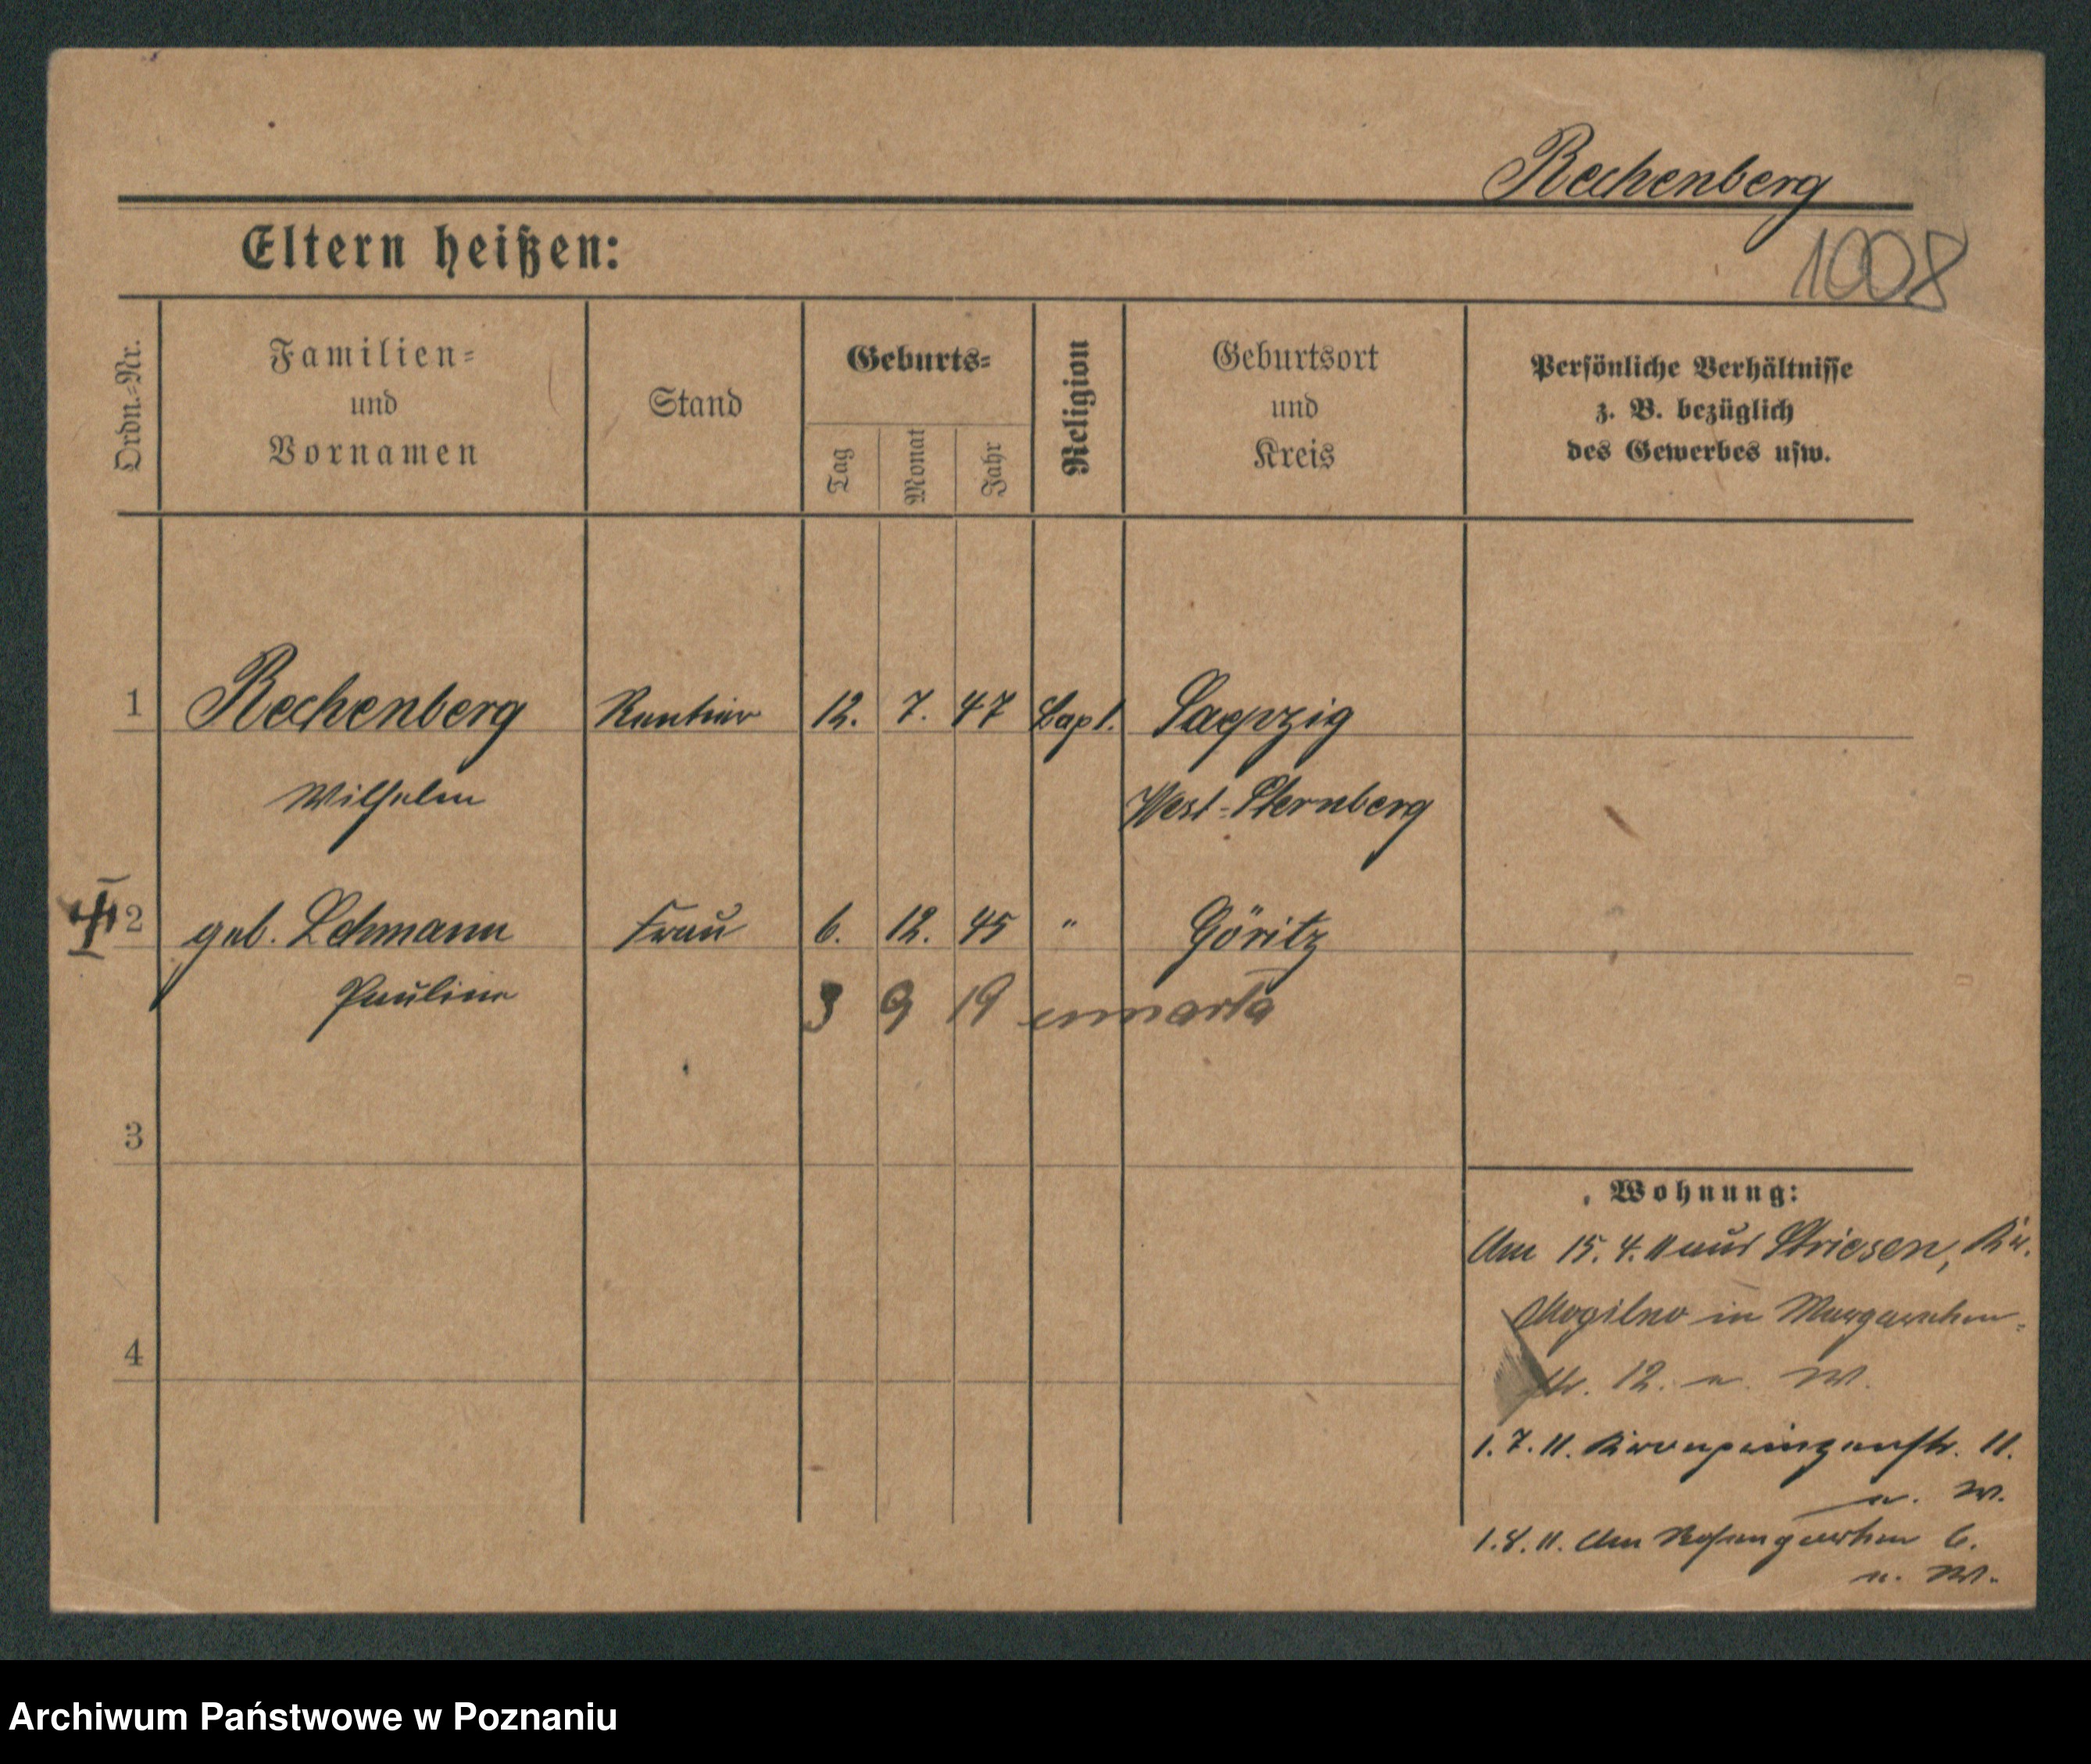 Rechenberg
1008
Eltern heißen:
Ordn.-Nr.
Familien-
und
Vornamen
Stand
Geburts-
Tag
Monat
Jahr
Religion
Geburtsort
und
Kreis
Persönliche Verhältnisse
z. B. bezüglich
des Gewerbes usw.
1 Rechenberg Rentier 12. 7. 47 Bapt.
Wilhelm West-Sternberg
2 geb. Lehmann Frau 6. 12. 45 " Göritz
Pauline 3 9 19 umarła
3
4
Wohnung:
Am 15. 4. 11 aus Striesen, Kr.
Mogilno in Margarethen-
str. 12. n. W.
1. 7. 11. Kronprinzenstr. 11.
n. W.
1. 8. 11. Am Rosengarten 6.
n. W.
Archiwum Państwowe w Poznaniu